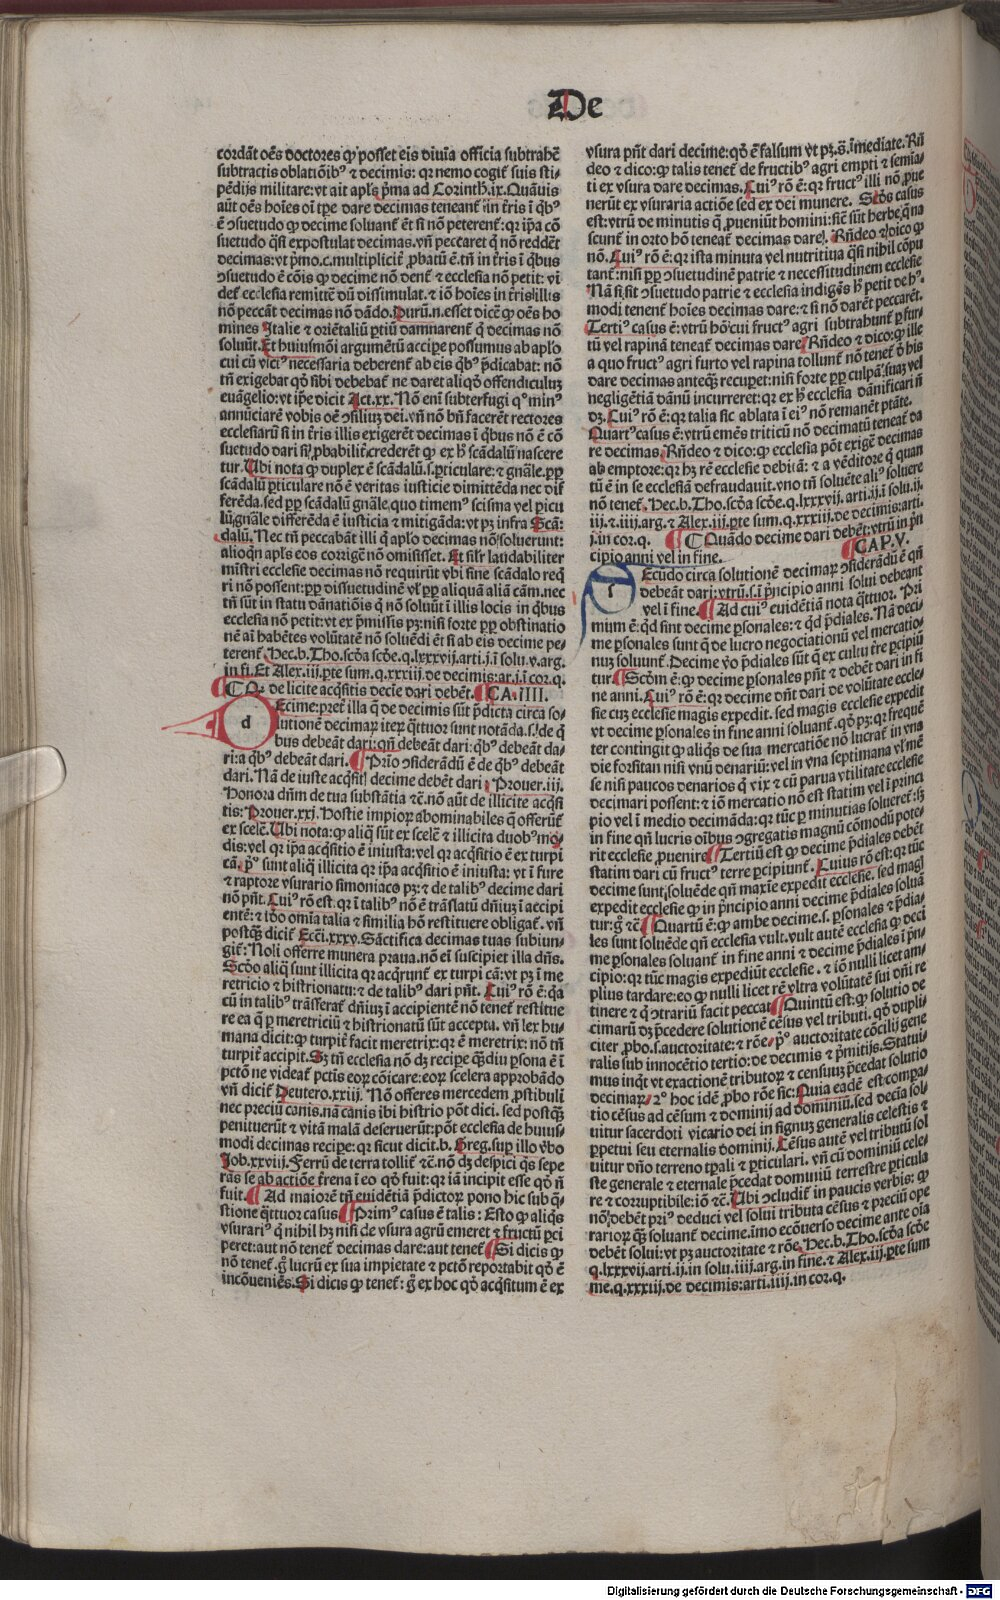 De
cordāt oēs doctores ꝙ posset eis diuīa officia subtrahē
subtractis oblatiōibꝰ ⁊ decimis: qr nemo cogit̄ suis sti-
pēdijs militare: vt ait apl̄s p̄ma ad Corinth̄.ix. Quāuis
aūt oēs hoīes oī tp̄e dare decimas teneant̄ in t̄ris ī qͥbꝰ
ē ɔsuetudo ꝙ decime soluant̄ et̄ si nō peterent̄: qr ip̄a cō
suetudo q̄si expostulat decimas. vn̄ peccaret q̄ nō reddēt
decimas: vt p̄mo.c. multiplicit̄ ꝓbatū ē. tn̄ in t̄ris ī qͥbus
ɔsuetudo ē cōis ꝙ decime nō dent̄ ⁊ ecclesia nō petit: vi
det̄ ecclesia remittē dū dissimulat. ⁊ iō hoīes in t̄ris illis
nō peccāt decimas nō dādo. Durū.n. esset dicē ꝙ oēs ho
mines Italie ⁊ oriētaliū ꝑtiū damnarent̄ q̄ decimas nō
soluūt. Et huiusmōi argumētū accipe possumus ab apl̄o
cui cū victꝰ necessaria deberent̄ ab eis qͥbꝰ p̄dicabat: nō
tn̄ exigebat qd̄ sibi debebat̄ ne daret aliqd̄ offendiculuꝫ
euāgelio: vt ip̄e dicit Act.xx. Nō eni subterfugi qͦ minꝰ
annūciarē vobis oē ɔsiliuꝫ dei. vn̄ nō bn̄ facerēt rectores
ecclesiarū si in t̄ris illis exigerēt decimas ī qͥbus nō ē cō
suetudo dari si ꝓbabilit̄ crederēt ꝙ ex h̄ scādalū nascere
tur. Ubi nota ꝙ duplex ē scādalū.s. ꝑticulare: ⁊ gn̄ale. ꝓꝑ
scādalū ꝑticulare nō ē veritas iusticie dimittēda nec dif
ferēda. sed ꝓꝑ scādalū gn̄ale, quo timemꝰ scisma vel ꝑicu
lū gn̄ale differēda ē iusticia ⁊ mitigāda: vt pꝫ infra Scā:
dalū. Nec tn̄ peccabāt illi q̄ apl̄o decimas nō soluerunt:
alioqn̄ apl̄s eos corrigē nō omisisset. Et sil̄r laudabiliter
mistri ecclesie decimas nō requirūt vbi sine scādalo req̄
ri nō possent: ꝓꝑ dissuetudinē vl̄ ꝓꝑ aliquā aliā cām. nec
tn̄ sūt in statu dānatiōis q̄ nō soluūt ī illis locis in qͥbus
ecclesia nō petit: vt ex p̄missis pꝫ: nisi forte ꝓꝑ obstinatio
nē aī habētes volūtatē nō soluēdi et̄ si ab eis decime pe-
terent̄. Hec.b. Tho. scd̄a scd̄e.q.lxxxvij. arti.j. ī solu.v. arg.
in fi. Et Alex.iij. ꝑte sum.q.xxxiij. de decimis: ar.j. ī cor.q.
Qꝫ de licite acq̄sitis decīe dari debēt. CA.IIII.
d Ecime: pret̄ illa q̄ de decimis sūt p̄dicta circa so-
lutionē decimaꝝ iteꝝ q̄ttuor sunt notāda.s. de q̄
bus debeāt dari: qn̄ debeāt dari: qͥbꝰ debeāt da-
ri: a qͥbꝰ debeāt dari. Prīo ɔsiderādū ē de qͥbꝰ debeāt
dari. Nā de iuste acq̄sit̄ decime debēt dari. Prouer.iij.
Honora dn̄m de tua substātia ⁊c̄. nō aūt de illicite acq̄si
tis: Prouer.xxj. Hostie impioꝝ abominabiles q̄ offerūt̄
ex scelē. Ubi nota: ꝙ aliq̄ sūt ex scelē ⁊ illicita duobꝰ mo
dis: vel qr ip̄a acq̄sitio ē iniusta: vel qr acq̄sitio ē ex turpi
cā. pͥꝰ sunt aliq̄ illicita qr ip̄a acq̄sitio ē iniusta: vt ī fure
⁊ raptore vsurario simoniaco pꝫ: ⁊ de talibꝰ decime dari
nō pn̄t. Cuiꝰ rō est. qr ī talibꝰ nō ē trāslatū dn̄iuꝫ ī accipi
entē: ⁊ iō̄ omīa talia ⁊ similia hō restituere obligat̄. vn̄
postqꝫ dicit̄ Eccī.xxxv. Sāctifica decimas tuas subiun-
git̄: Noli offerre munera praua. nō eī suscipiet illa dn̄s.
Scd̄o aliq̄ sunt illicita qr acq̄runt̄ ex turpi cā: vt pꝫ ī me
retricio ⁊ histrionatu: ⁊ de talibꝰ dari pn̄t. Cuiꝰ rō ē: q̄a
cū in talibꝰ trāsferat̄ dn̄iuꝫ ī accipientē nō tenet̄ restitue
re ea q̄ ꝑ meretriciū ⁊ histrionatū sūt accepta. vn̄ lex hu-
mana dicit: ꝙ turpit̄ facit meretrix: qr ē meretrix: nō tn̄
turpit̄ accipit. Sꝫ tn̄ ecclesia nō dꝫ reciꝑe q̄ꝫdiu ꝑsona ē ī
pctō ne videat̄ pctis eoꝝ cōicare: eoꝝ scelera approbādo
vn̄ dicit̄ Deutero.xxiij. Nō offeres mercedem ꝓstibuli
nec preciū canis. nā canis ibi histrio pōt dici. sed postqꝫ
penituerūt ⁊ vitā malā deseruerūt: pōt ecclesia de huius-
modi decimas recipe: qr sicut dicit.b. Greg. suꝑ illo v̄bo
Job.xxviij. Ferrū de terra tollit̄ ⁊c̄. nō dꝫ despici q̄s sepe
ras se ab actiōe t̄rena ī eo qd̄ fuit: qr iā incipit esse qd̄ n̄
fuit. Ad maiorē tn̄ euidētiā p̄dictoꝝ pono hic sub q̄-
stione q̄ttuor casus Primꝰ casus ē talis: Esto ꝙ aliq̄s
vsurariꝰ q̄ nihil hꝫ nisi de vsura agrū emeret ⁊ fructū ꝑci
peret: aut nō tenet̄ decimas dare: aut tenet̄ Si dicis ꝙ
nō tenet̄. ḡ lucrū ex sua impietate ⁊ pctō reportabit qd̄ ē
incōueniēs. Si dicis ꝙ tenet̄: ḡ ex hoc qd̄ acq̄situm ē ex
vsura pn̄t dari decime: qd̄ ē falsum vt pꝫ.s̄. īmediate. Rn̄
deo ⁊ dico: ꝙ talis tenet̄ de fructibꝰ agri empti ⁊ semia-
ti ex vsura dare decimas. Cuiꝰ rō ē: qr fructꝰ illi nō ꝓue
nerūt ex vsuraria actiōe sed ex dei munere. Scd̄s casus
est: vtrū de minutis q̄ ꝓueniūt homini: sic̄ sūt herbe q̄ na
scunt̄ in orto hō teneat̄ decimas dare. Rn̄deo ⁊ dico ꝙ
nō. Cuiꝰ rō ē: qr ista minuta vel nutritiua q̄si nihil cōpu
tant̄: nisi ꝓꝑ ɔsuetudinē patrie ⁊ necessitudinem ecclesie
Nā si sit ɔsuetudo patrie ⁊ ecclesia indigēs h̄ petit de hꝰ.
modi tenent̄ hoīes decimas dare: ⁊ si nō darēt peccarēt.
Tertiꝰ casus ē: vtrū hō cui fructꝰ agri subtrahunt̄ ꝑ fur-
tū vel rapinā teneat̄ decimas dare Rn̄deo ⁊ dico: ꝙ ille
a quo fructꝰ agri furto vel rapina tollunt̄ nō tenet̄ d̄ his
dare decimas anteqꝫ recuꝑet: nisi forte ꝓꝑ culpā suaꝫ vel
negligētiā dānū incurreret: qr ex h̄ ecclesia dānificari n̄
dꝫ. Cuiꝰ rō ē: qr talia sic ablata ī eiꝰ nō remanēt ptāte.
Quartꝰ casus ē: vtrū emēs triticū nō decimatū teneat̄ da
re decimas. Rn̄deo ⁊ dico: ꝙ ecclesia pōt exigē decimas
ab emptore: qr hꝫ rē ecclesie debitā: ⁊ a vēditore q̄ quan
tū ē in se ecclesiā defraudauit. vno tn̄ soluēte aliꝰ soluere
nō tenet̄. Hec.b. Tho. scd̄a scd̄e.q.lxxxvij. arti.ij. ī solu.ij.
iij. ⁊.iiij. arg. ⁊ Alex.iij. ꝑte sum.q.xxxiij. de decimis: arti.
j. in cor.q. Quādo decime dari debēt: vtrū in pn̄
cipio anni vel in fine. CAP.V.
s Ecūdo circa solutionē decimaꝝ ɔsiderādū ē qn̄
debeāt dari: vtrū.s. ī pn̄cipio anni solui debeant
vel ī fine. Ad cuiꝰ euidētiā nota q̄ttuor. Pri
mum ē: qd̄ sint decime ꝑsonales: ⁊ qd̄ p̄diales. Nā deci-
me ꝑsonales sunt q̄ de lucro negociationū vel mercatio-
nuꝫ soluunt̄. Decime v̄o p̄diales sūt q̄ ex cultu t̄re ꝑcipiū
tur Scd̄m ē: ꝙ decime ꝑsonales pn̄t ⁊ debēt dari in fi
ne anni. Cuiꝰ rō ē: qr decime dn̄t dari de volūtate eccle-
sie cuꝫ ecclesie magis expedit. sed magis ecclesie expedit
vt decime ꝑsonales in fine anni soluant̄. qd̄ pꝫ: qr frequē
ter contingit ꝙ aliq̄s de sua mercatiōe nō lucrat̄ in vna
die forsitan nisi vnū denariū: vel in vna septimana vl̄ mē
se nisi paucos denarios q̄ vix ⁊ cū parua vtilitate ecclesie
decimari possent: ⁊ iō mercatio nō est statim vel ī princi
pio vel ī medio decimāda: qr tūc ꝑ minutias solueret̄: sꝫ
in fine qn̄ lucris oībus ɔgregatis magnū cōmodū pote-
rit ecclesie ꝓuenire Tertiū est ꝙ decime p̄diales debēt
statim dari cū fructꝰ terre ꝑcipiunt̄. Cuius rō est: qr tūc
decime sunt soluēde qn̄ maxīe expedit ecclesie. sed magꝭ
expedit ecclesie ꝙ in pn̄cipio anni decime p̄diales soluā
tur: ḡ ⁊c̄ Quartū ē: ꝙ ambe decime.s. ꝑsonales ⁊ p̄dia-
les sunt soluēde qn̄ ecclesia vult. vult autē ecclesia ꝙ deci
me ꝑsonales soluant̄ in fine anni ⁊ decime p̄diales ī pn̄-
cipio: qr tūc magis expediūt ecclesie. ⁊ iō nulli licet am-
plius tardare: eo ꝙ nulli licet rē vltra volūtatē sui dn̄i re
tinere ⁊ q̄ ɔtrariū facit peccat Quintū est: ꝙ solutio de
cimarū dꝫ p̄cedere solutionē cēsus vel tributi. qd̄ dupli-
citer ꝓbo.s. auctoritate: ⁊ rōe. pͥꝰ auctoritate cōcilij gene
ralis sub innocētio tertio: de decimis ⁊ p̄mitijs. Statui-
mus inq̄t vt exactionē tributoꝝ ⁊ censuuꝫ p̄cedat solutio
decimaꝝ. 2ꝰ hoc idē ꝓbo rōe sic: Quia eadē est compa-
tio cēsus ad cēsum ⁊ dominij ad dominiū. sed decīa sol-
uitur sacerdoti vicario dei in signuꝫ generalis celestis ⁊
ꝑpetui seu eternalis dominij. Cēsus autē vel tributū sol
uitur dn̄o terreno tꝑali ⁊ ꝑticulari. vn̄ cū dominiū cele-
ste generale ⁊ eternale p̄cedat dominiū terrestre ꝑticula
re ⁊ corruptibile: iō ⁊c̄. Ubi ɔcludit̄ in paucis verbis: ꝙ
nō debēt priꝰ deduci vel solui tributa cēsus ⁊ preciū ope
rarioꝝ qꝫ soluant̄ decime. imo ecōuerso decime ante oīa
debēt solui: vt pꝫ auctoritate ⁊ rōe. Hec.b. Tho. scd̄a scd̄e
q.lxxxvij. arti.ij. in solu.iiij. arg. in fine. ⁊ Alex.iij. ꝑte sum
me.q.xxxiij. de decimis: arti.iiij. in cor.q.
Digitalisierung gefördert durch die Deutsche Forschungsgemeinschaft - DFG